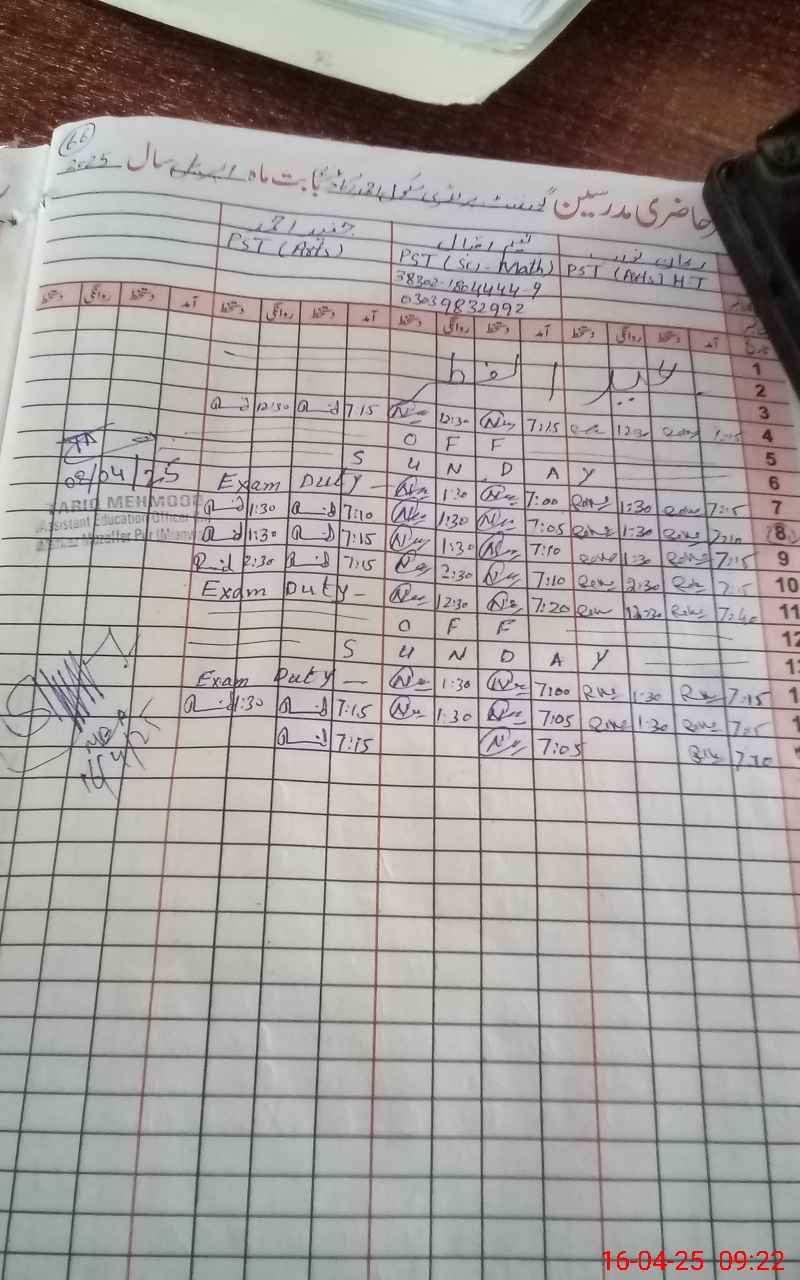 66
حاضری مدرسین گورنمنٹ پرائمری سکول بابت ماہ اپریل سال 2025
PST (Arts) H.T
PST (Sci-Math)
PST (Arts)
38302-1804444-9
03039832992
تاریخ آمد دستخط روانگی دستخط آمد دستخط روانگی دستخط آمد دستخط روانگی دستخط
1
عید الفطر
2
3
12:30 7:15 12:30 7:15 12:30 4
O F F 5
S U N D A Y 6
Exam Duty - 1:30 7:00 1:30 7:15 7
1:30 7:10 1:30 7:05 1:30 7:10 8
1:30 7:15 1:30 7:10 1:30 7:15 9
2:30 7:15 2:30 7:10 2:30 7:15 10
Exam Duty - 12:30 7:20 12:30 7:40 11
O F F 12
S U N D A Y
Exam Duty - 1:30 7:00 1:30 7:15
1:30 7:15 1:30 7:05 1:30 7:15
7:15 7:05 7:10
08/04/25
TARIQ MEHMOOD
Assistant Education Officer
16-04-25 09:22